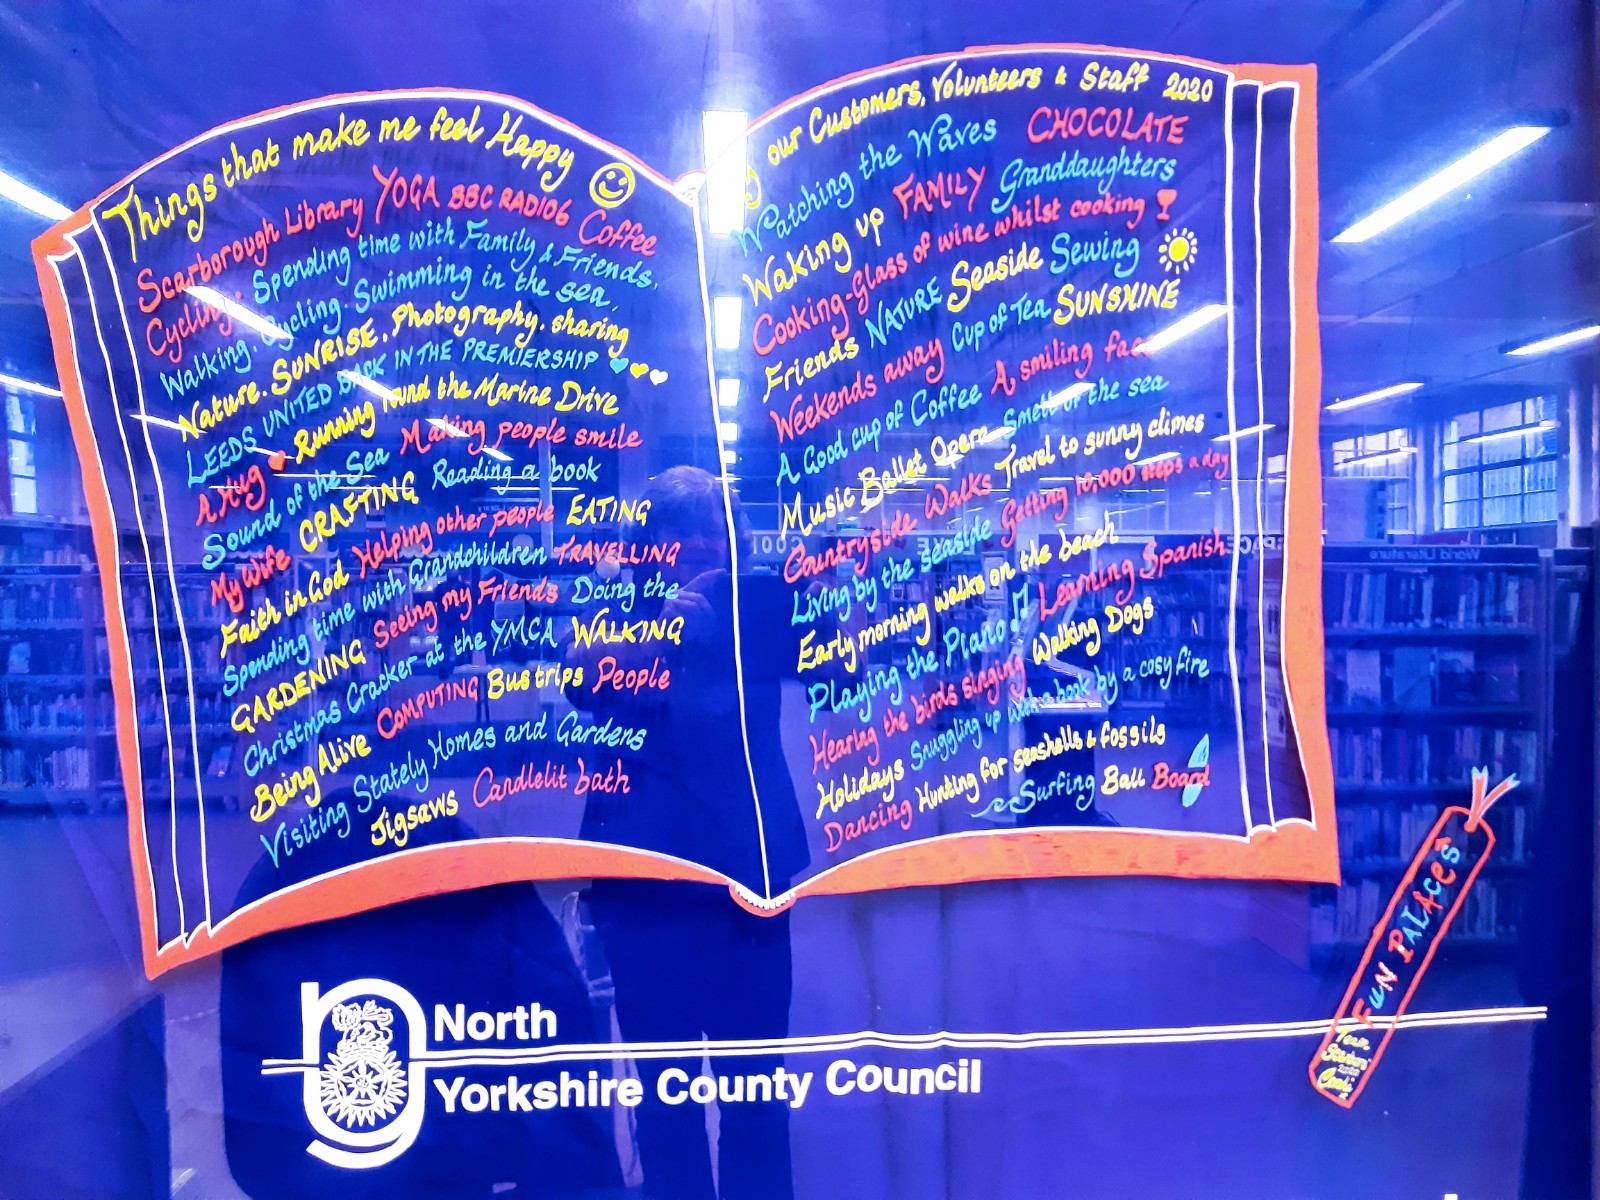 Things that make me feel Happy
Scarborough Library YOGA BBC RADIO6 Coffee
Cycling. Spending time with Family & Friends.
Walking. Cycling. Swimming in the sea.
Nature. SUNRISE. Photography. sharing
LEEDS UNITED BACK IN THE PREMIERSHIP
A Hug Running round the Marine Drive
Sound of the Sea Making people smile
My Wife CRAFTING Reading a book
Faith in God Helping other people EATING
Spending time with Grandchildren TRAVELLING
GARDENING Seeing my Friends Doing the
Christmas Cracker at the YMCA WALKING
Being Alive COMPUTING Bus trips People
Visiting Stately Homes and Gardens
Jigsaws Candlelit bath
our Customers, Volunteers & Staff 2020
Watching the Waves CHOCOLATE
Waking up FAMILY Granddaughters
Cooking-Glass of wine whilst cooking
Friends NATURE Seaside Sewing
Weekends away Cup of Tea SUNSHINE
A Good cup of Coffee A smiling face
Music Ballet Opera Smell of the sea
Countryside Walks Travel to sunny climes
Living by the seaside Getting 10,000 steps a day
Early morning walks on the beach
Playing the Piano Learning Spanish
Hearing the birds singing Walking Dogs
Holidays Snuggling up with a book by a cosy fire
Dancing Hunting for seashells & fossils
Surfing Ball Board
FUN PALACES
Team
2020
North
Yorkshire County Council
World Literature